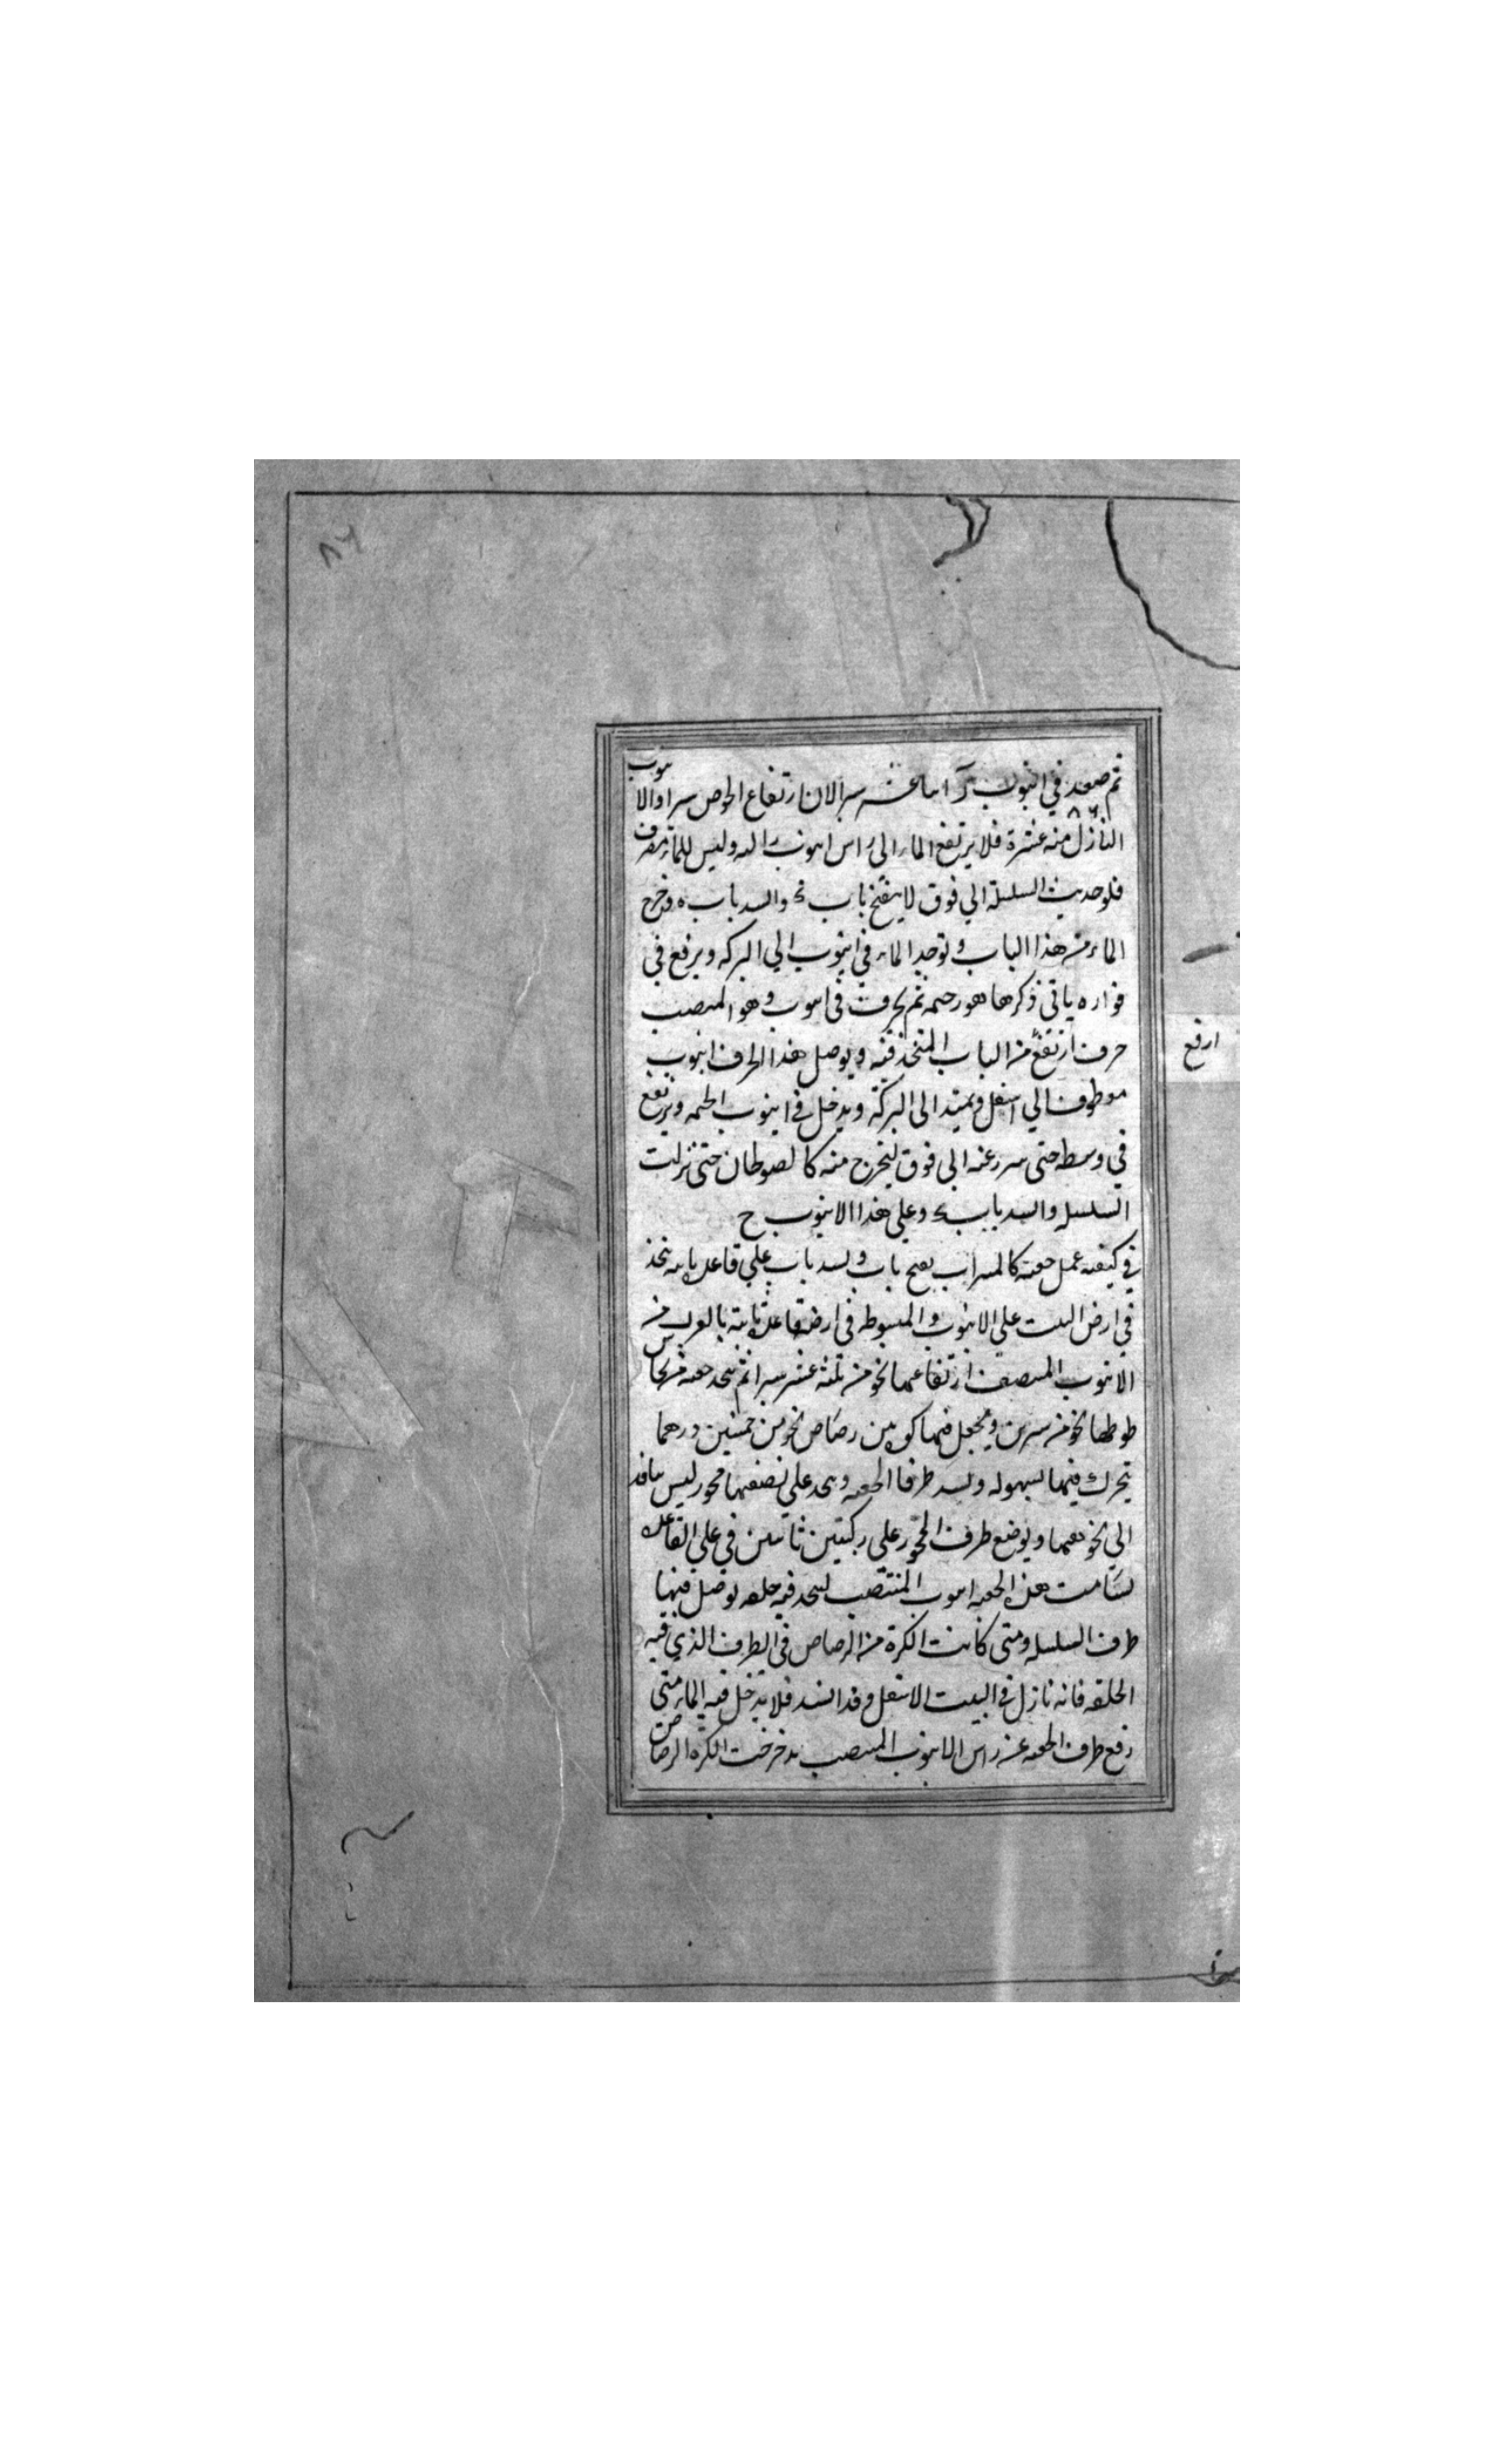 ٨٦
ثم صعد في انبوب ر اثنا عشر سبرا لان ارتفاع الحوض سرا والانبوب
٨٦
النازل منه عشرة فلا يرتفع الماء الى راس انبوب ر البه وليس للماء مصرف
فلو حديث السلسلة الي فوق لا ينفتح باب ء والسد باب ه وخرج
الماء من هذا الباب و توجد الماء في انبوب الي البركه ويرفع في
فواره ياتى ذكرها هو رحمه ثم يحرف في انبوب و هو المنصب
حرف ارتفع من الباب المتخذ فيه ويوصل هذا الحرف انبوب
معطوف الي اسفل ويمتد الى البركة ويدخل في انبوب الحمه ويرتفع
في وسطه حتى عنه الى فوق ليخرج منه كالصوطان حتى نزلت
السلسله والسد باب ء وعلي هذا الانبوب ح
في كيفيه عمل جعبه كالميزاب يفتح باب و يسد باب علي قاعده ثابته يتخذ
في ارض البيت علي الانبوب و المبسوطه في ارض قاعدة ثابتة بالقرب من
الانبوب المنتصب ارتفاعها نحو من ثلثه عشر سبرا ثم يتخذ جعبه من نحاس
طولها نحو من سبرين ويجعل فيها كره من رصاص نحو من خمسين درهما
تتحرك فيها بسهوله ويسد طرفا الجعبه ويتخذ علي نصفها محور ليس بنافذ
الي نحو يعها ويوضع طرف المحور علي ركبتين ثابتتين في علي القاعده
لتسامت هذه الجعبه انبوب المنتصب ليتخذ فيه حلقه يوصل فيها
طرف السلسله ومتى كانت الكرة من الرصاص في الطرف الذي فيه
الحلقه فانه نازل في البيت الاسفل وقد انسد فلا يدخل فيه الماء متى
رفع طرف الجعبه عن راس الانبوب المنتصب تدحرجت الكره الرصاص
ارفع